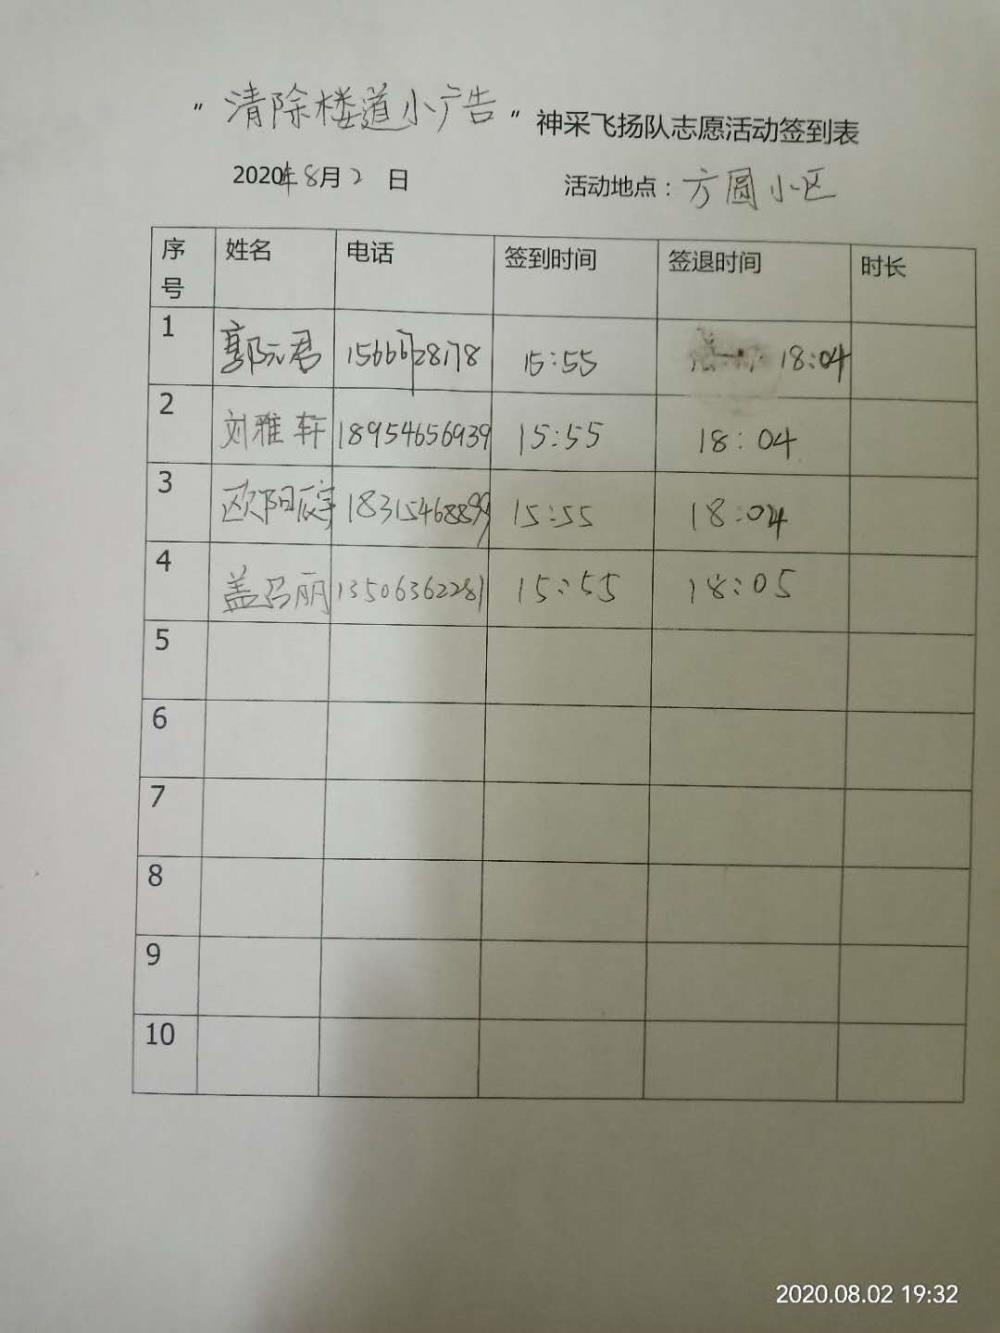 "清除楼道小广告"神采飞扬队志愿活动签到表
2020年8月2日 活动地点：方圆小区
序号 姓名 电话 签到时间 签退时间 时长
1 郭沅君 15:55 18:04
2 刘雅轩 18954656939 15:55 18:04
3 欧阳宸宇 18315468899 15:55 18:04
4 盖乃丽 13506362281 15:55 18:05
5
6
7
8
9
10
2020.08.02 19:32